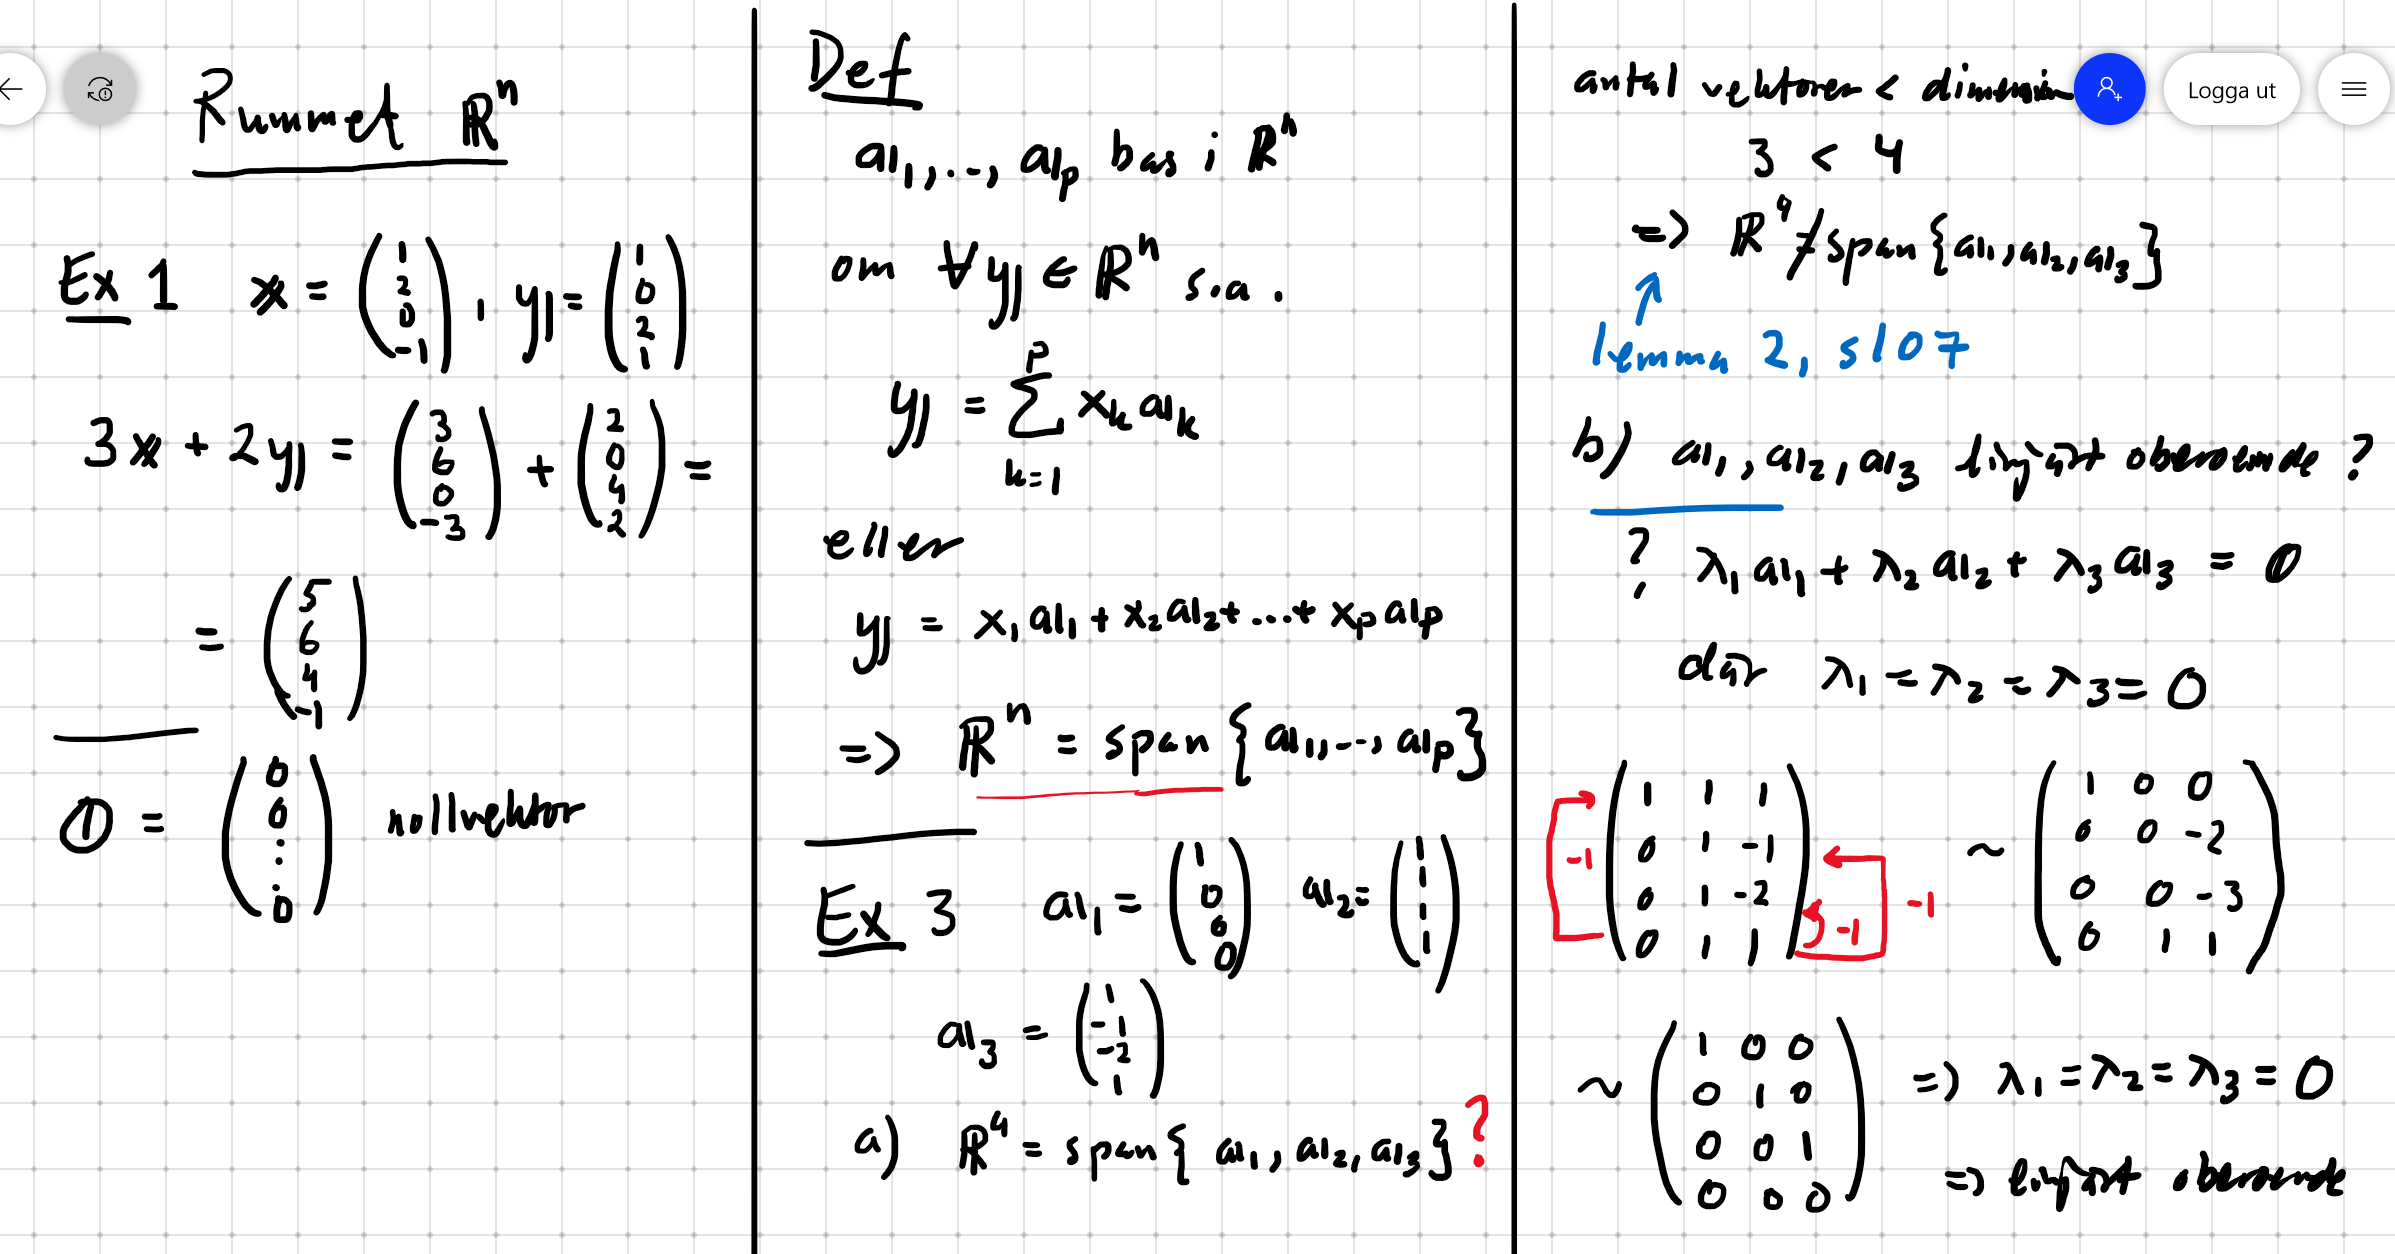 Rummet ℝⁿ
Ex 1 𝕩 = (1 2 0 -1), 𝕪 = (1 0 2 1)
3𝕩 + 2𝕪 = (3 6 0 -3) + (2 0 4 2) =
= (5 6 4 -1)
𝟘 = (0 0 ⋮ 0) nollvektor
Def
𝕒₁, ..., 𝕒ₚ bas i ℝⁿ
om ∀𝕪 ∈ ℝⁿ s.a.
𝕪 = ∑ₖ₌₁ᵖ xₖ𝕒ₖ
eller
𝕪 = x₁𝕒₁ + x₂𝕒₂ + ... + xₚ𝕒ₚ
=> ℝⁿ = span {𝕒₁, ..., 𝕒ₚ}
Ex 3 𝕒₁ = (1 0 0 0) 𝕒₂ = (1 1 1 1)
𝕒₃ = (1 -1 -2 1)
a) ℝ⁴ = span{𝕒₁, 𝕒₂, 𝕒₃}?
antal vektorer < dimension
Logga ut
3 < 4
=> ℝ⁴ ≠ span{𝕒₁, 𝕒₂, 𝕒₃}
lemma 2, s107
b) 𝕒₁, 𝕒₂, 𝕒₃ linjärt oberoende?
? λ₁𝕒₁ + λ₂𝕒₂ + λ₃𝕒₃ = 𝟘
där λ₁ = λ₂ = λ₃ = 0
1 1 1 ~ 1 0 0
-1 0 1 -1 0 0 -2
0 1 -2 -1 0 0 -3
0 1 1 -1 0 1 1
~ 1 0 0
0 1 0 => λ₁ = λ₂ = λ₃ = 0
0 0 1
0 0 0 => linjärt oberoende